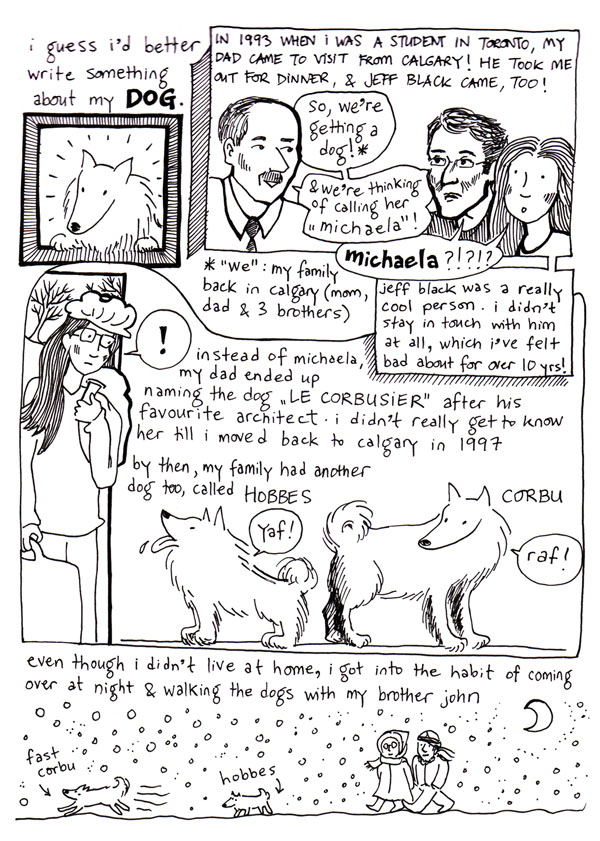 i guess i'd better
write something
about my DOG.
IN 1993 WHEN i WAS A STUDENT IN TORONTO, MY
DAD CAME TO VISIT FROM CALGARY! HE TOOK ME
OUT FOR DINNER, & JEFF BLACK CAME, TOO!
so, we're
getting a
dog!*
& we're thinking
of calling her
„michaela"!
michaela?!?!?
* "we": my family
back in calgary (mom,
dad & 3 brothers)
jeff black was a really
cool person. i didn't
stay in touch with him
at all, which i've felt
bad about for over 10 yrs!
!
instead of michaela,
my dad ended up
naming the dog „LE CORBUSiER" after his
favourite architect. i didn't really get to know
her till i moved back to calgary in 1997
by then, my family had another
dog too, called HOBBES
CORBU
yaf!
raf!
even though i didn't live at home, i got into the habit of coming
over at night & walking the dogs with my brother john
fast
corbu
hobbes